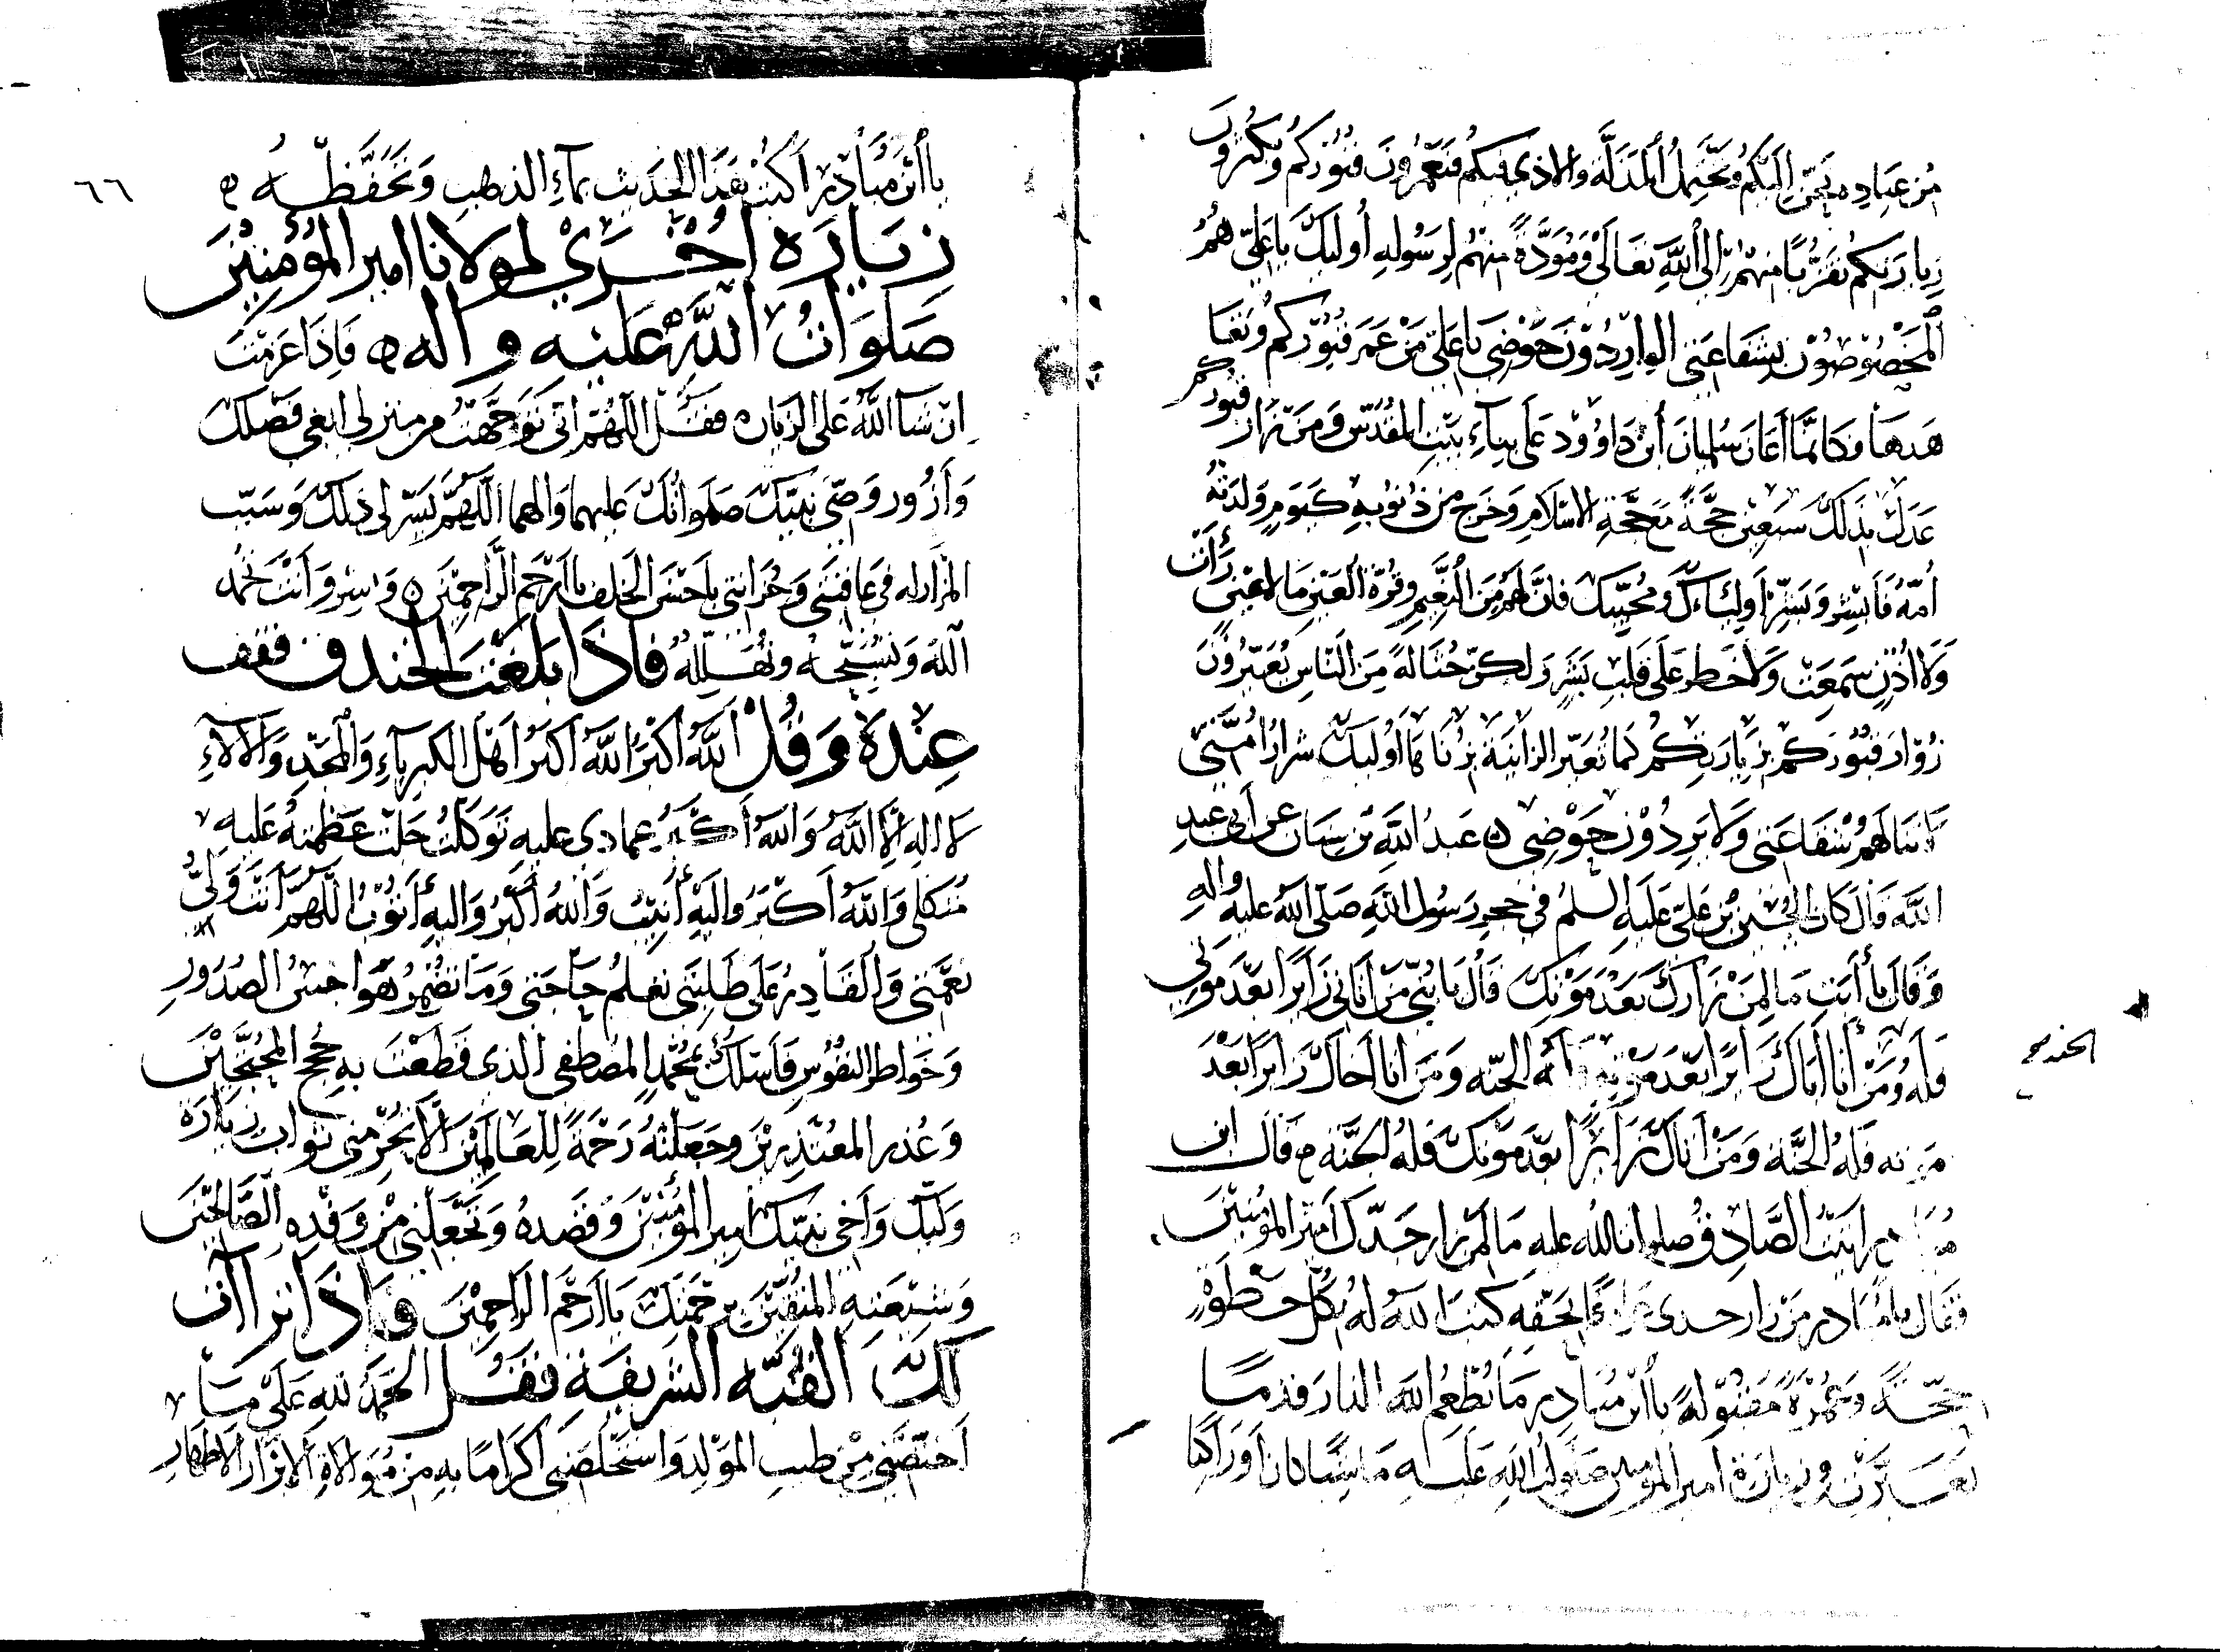 من عباده تحن اليكم وتحتمل المذلة والاذى فيكم فيعمرون قبوركم ويكثرون
زيارتكم تقربا منهم الى الله تعالى ومودة منهم لرسوله أوليك يا على هم
المخصوصون بشفاعتى الواردون حوضى يا على من عمر قبوركم وتعا
هدها فكانما أعان سليمان أبن داوود على بناء بيت المقدس ومن زار قبوركم
عدل بذلك سبعين حجة مع حجة الاسلام وخرج من ذنوبه كيوم ولدته
أمه فأبشر وبشر أولياءك ومحبيك فان لهم من النعيم وقرة العين ما لا عين رأت
ولا أذن سمعت ولا خطر على قلب بشر ولكن حثالة من الناس يعيرون
زوار قبوركم بزيارتكم كما تعير الزانية بزناها أوليك شرار أمتى
لا تنالهم شفاعتى ولا يردون حوضى ه عبد الله بن سنان عن أبى عبد
الله قال كان الحسين بن على عليه السلم فى حجر رسول الله صلى الله عليه واله
وقال يا أبت ما لمن زارك بعد موتك قال يا بنى من أتانى زايرا بعد موتى
فله ومن أتا أباك زايرا بعد موته فله الجنه ومن اتا أخاك زايرا بعد
موته فله الجنة ومن أتاك زايرا بعد موتك فله الجنة ه قال ابن
مارد أتيت الصادق صلوات الله عليه ما لمن زار جدك أمير المؤمنين
فقال يا بن مارد من زار جدى عارفا بحقه كتب الله له بكل خطوة
حجة وعمرة مقبولة يا أبن مارد ما تطعم الله النار قدما
تغبرت فى زيارة أمير المؤمنين صلوات الله عليه ماشيا كان أو راكبا
الجنة صح
٦٦
يا أبن مارد أكتب هذا الحديث بماء الذهب وتحفظه ه
زيارة أخرى لمولانا امير المؤمنين
صلوات الله عليه واله ه فاذا عزمت
ان شا الله على الزياره فقل اللهم انى توجهت من منزلى ابغى فضلك
وأزور وصى نبيك صلواتك عليهما والهما اللهم يسر لى ذلك وسبب
المزار له فى عاقبتى وحزانتى باحسن الخلف يا أرحم الراحمين ه وسر وأنت تحمد
الله وتسبحه وتهلله فاذا بلغت الخندق فقف
عنده وقل الله اكبر الله أكبر أهل الكبرياء والمجد والالاء
لا اله الا الله والله أكبر عمادى عليه توكلت جلت عظمته عليه
متكلى والله أكبر واليه أنيب والله أكبر واليه أتوب اللهم أنت ولى
نعمتى والقادر على طلبتى تعلم حاجتى وما تضمر هواجس الصدور
وخواطر النفوس فأسئلك بمحمد المصطفى الذى قطعت به حجج المحتجين
وعذر المعتذرين وجعلته رحمة للعالمين ألا تحرمنى ثواب زيارة
وليك وأخى نبيك أمير المؤمنين وقصده وتجعلنى من وفده الصالحين
وشيعته المتقين برحمتك يا أرحم الراحمين فاذا تراآت
لك القبه الشريفة فقل الحمد لله على ما
أختصنى من طيب المولد واستخلصنى أكراما به من موالاة الأبرار الاطهار